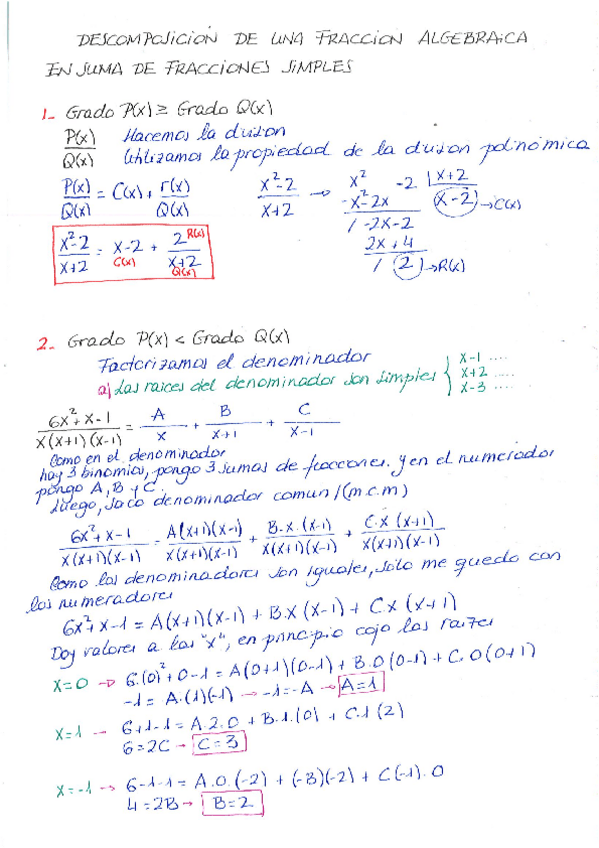 DESCOMPOSICION DE UNA FRACCION ALGEBRAICA
EN SUMA DE FRACCIONES SIMPLES
1- Grado P(x) ≥ Grado Q(x)
P(x)/Q(x) Hacemos la division
Utilizamos la propiedad de la division polinómica
P(x)/Q(x) = C(x) + r(x)/Q(x)
x²-2/x+2 → x² -2 | x+2
-x²-2x (x-2) → C(x)
/ -2x-2
2x+4
/ (2) → R(x)
x²-2/x+2 = x-2 C(x) + 2 R(x)/x+2 Q(x)
2- Grado P(x) < Grado Q(x)
Factorizamos el denominador
a) Las raices del denominador son simples { x-1 ....
x+2 ....
x-3 ....
6x²+x-1/x(x+1)(x-1) = A/x + B/x+1 + C/x-1
Como en el denominador
hay 3 binomios, pongo 3 sumas de fracciones. y en el numerador
pongo A, B y C
Luego, saco denominador comun / (m.c.m)
6x²+x-1/x(x+1)(x-1) = A(x+1)(x-1)/x(x+1)(x-1) + B.x.(x-1)/x(x+1)(x-1) + C.x (x+1)/x(x+1)(x-1)
Como los denominadores son iguales, solo me quedo con
los numeradores
6x²+x-1 = A(x+1)(x-1) + B.x(x-1) + Cx(x+1)
Doy valores a las "x", en principio cojo las raizes
x=0 → 6.(0)²+0-1 = A(0+1)(0-1) + B.0(0-1) + C.0(0+1)
-1 = A.(1)(-1) → -1=-A → A=1
x=1 → 6+1-1 = A.2.0 + B.1.(0) + C.1(2)
6=2C → C=3
x=-1 → 6-1-1 = A.0.(-2) + (-B)(-2) + C(-1).0
4=2B → B=2